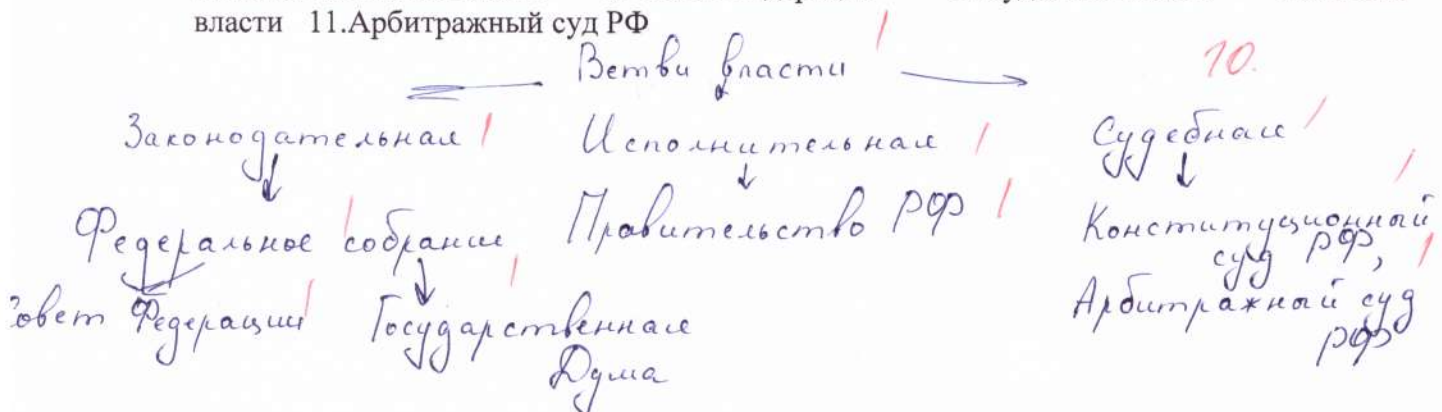 власти 11.Арбитражный суд РФ
Ветви власти
10.
Законодательная Исполнительная Судебная
Федеральное собрание Правительство РФ Конституционный суд РФ,
Совет Федерации Государственная Дума Арбитражный суд РФ